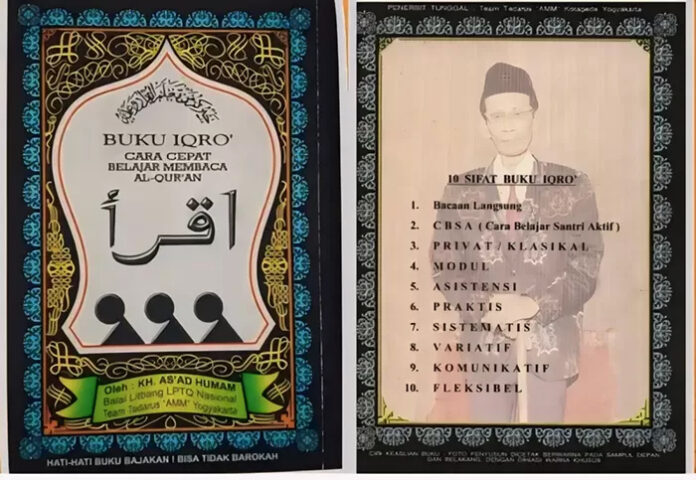 BUKU IQRO'
CARA CEPAT
BELAJAR MEMBACA
AL-QUR'AN
اقرأ
Oleh : KH. AS'AD HUMAM
Balai Litbang LPTQ Nasional
Team Tadarus "AMM" Yogyakarta
HATI-HATI BUKU BAJAKAN ! BISA TIDAK BAROKAH
PENERBIT TUNGGAL : Team Tadarus "AMM" Kotagede Yogyakarta
10 SIFAT BUKU IQRO'
1. Bacaan Langsung
2. CBSA ( Cara Belajar Santri Aktif )
3. PRIVAT / KLASIKAL
4. MODUL
5. ASISTENSI
6. PRAKTIS
7. SISTEMATIS
8. VARIATIF
9. KOMUNIKATIF
10. FLEKSIBEL
CIRI KEASLIAN BUKU : FOTO PENYUSUN DICETAK BERWARNA PADA SAMPUL DEPAN
DAN BELAKANG, DENGAN DIHIASI WARNA KHUSUS